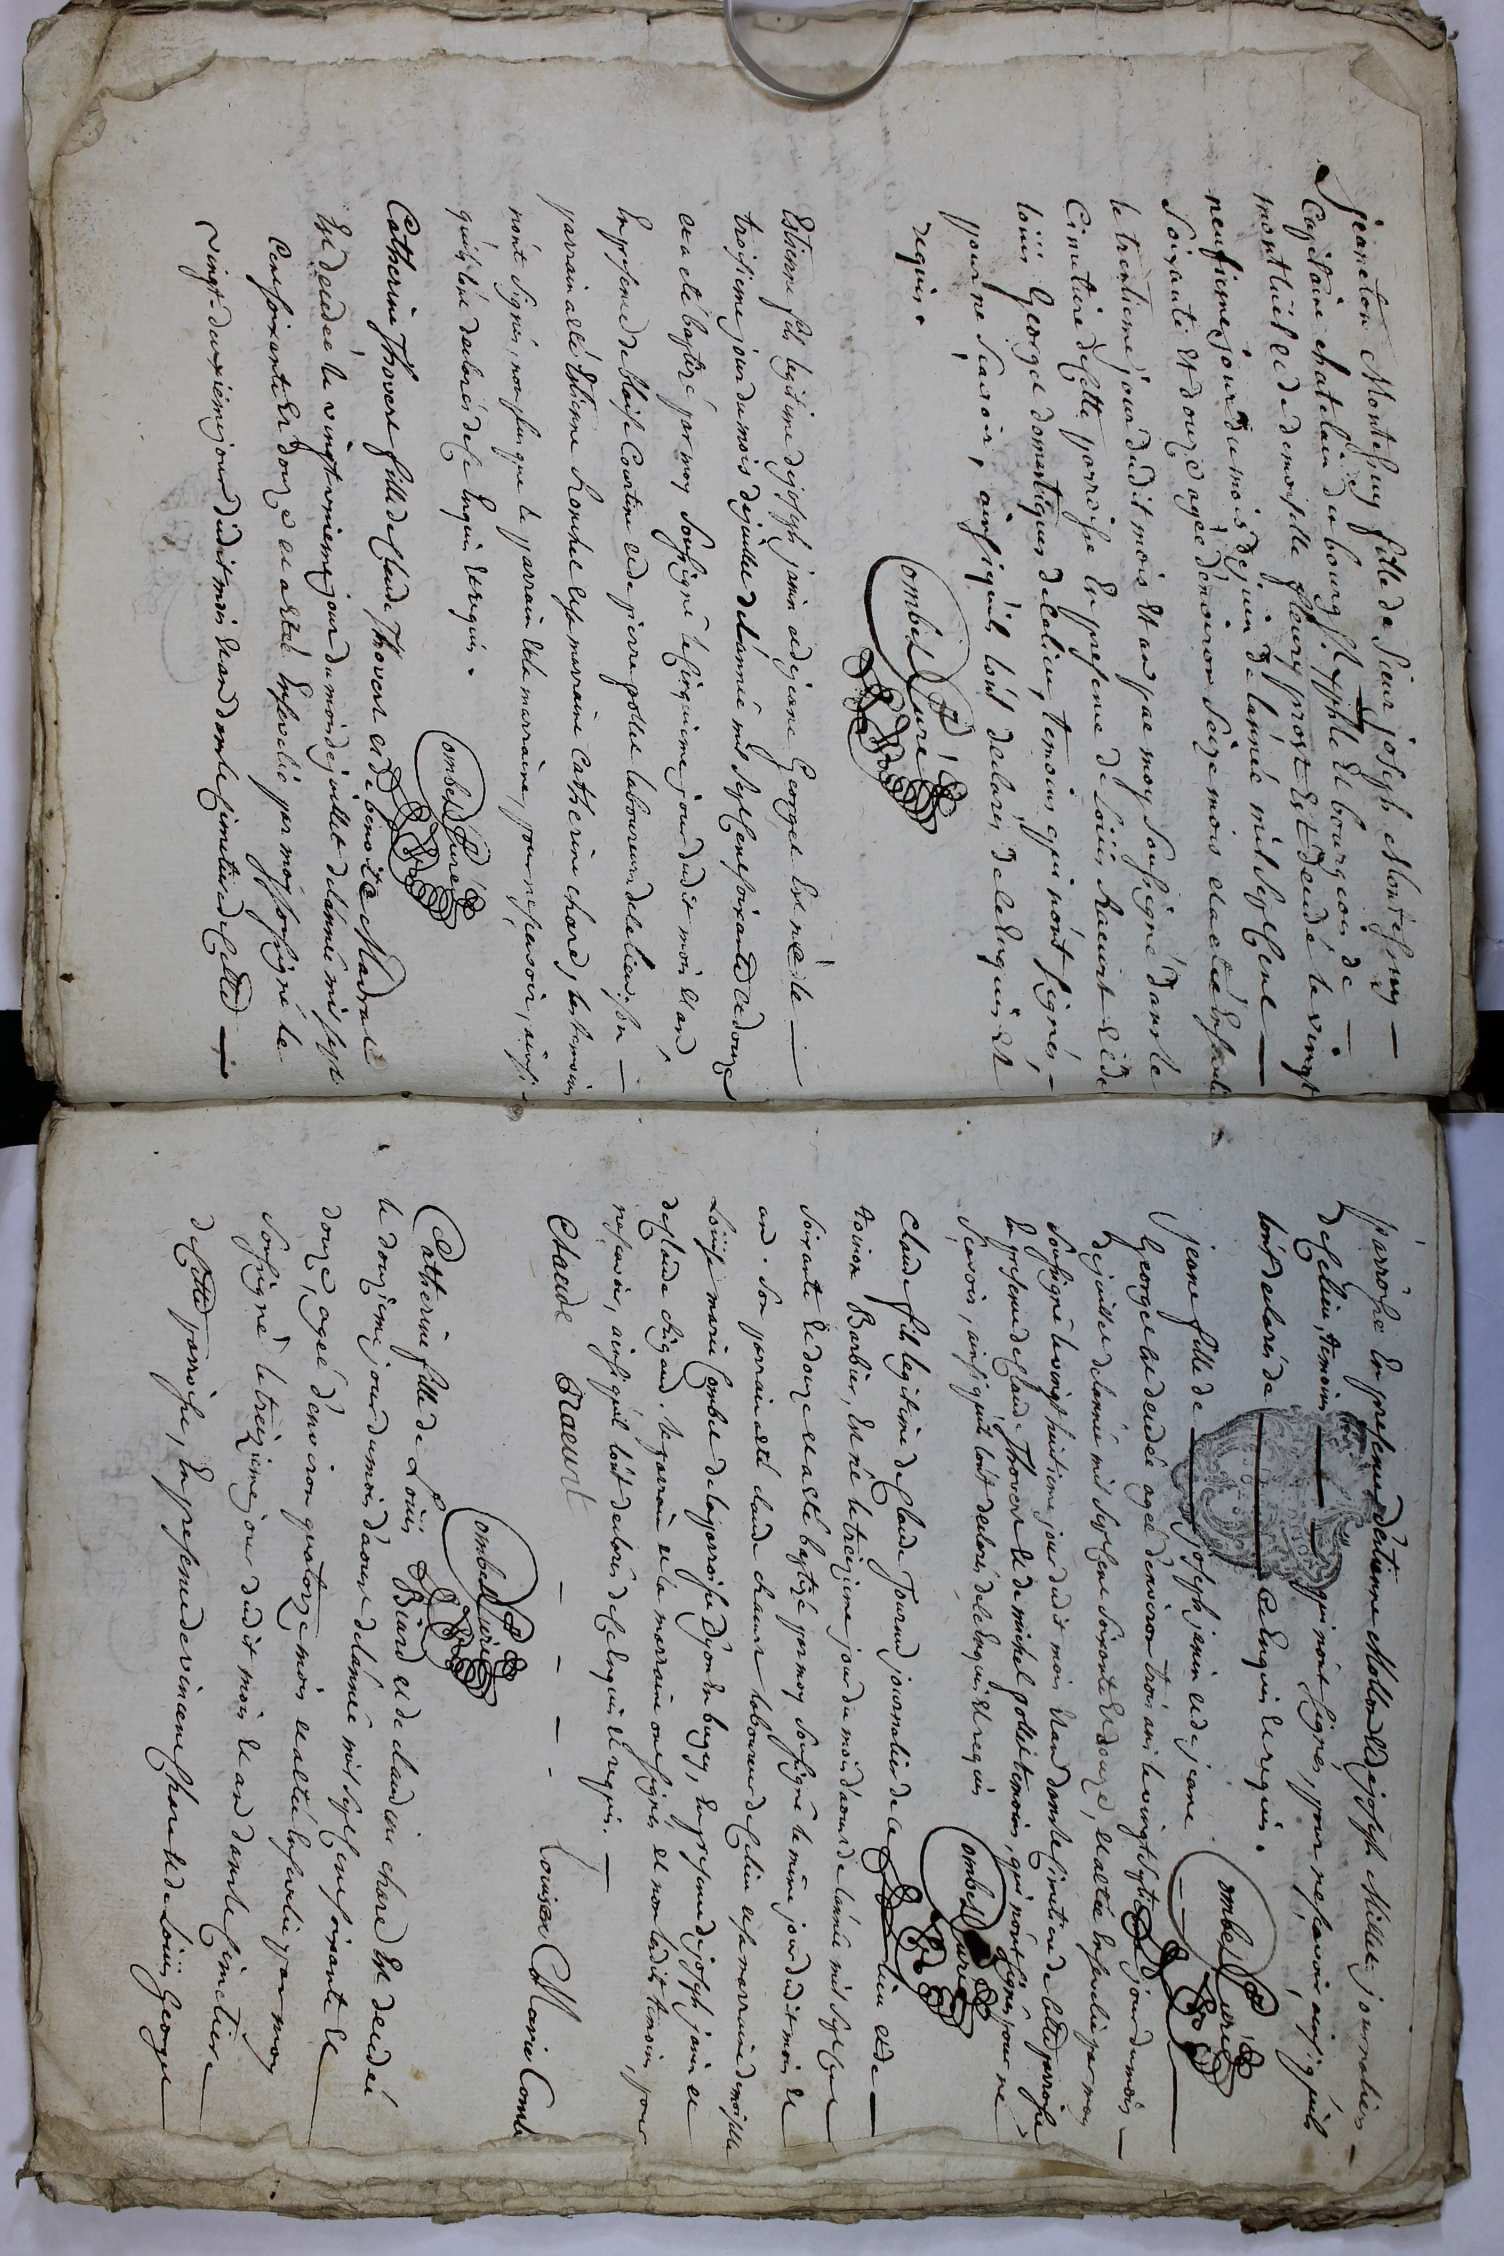 jeaneton Montessuy fille de Sieur joseph Montessuy
Capitaine chatelain du bourg St Cyphle et bourgeois de
montluel et de demoiselle fleury prost Est decedé le vingt
neufieme jour du mois de juin de lannée mil sept cent
Soixante et douze agée d'environ Seize mois et a été Ensevelie
le trentieme jour dudit mois et an par moy Soussigné dans le
Cimetiere de cette parroisse En presence de Loüis Raeurt et de
loüis George domestiques de ce lieu, temoins qui n'ont signés,
pour ne Scavoir, ainsi qu'ils l'ont declarés de ce Enquis et
requis.
Combet Curé
Estienne fils legitime de joseph janin et de jeane George Est né le
troisieme jour du mois de juillet de lannée mil sept cent soixante et douze
et a eté baptizé par moy Soussigné le cinquieme jour dudit mois et an
En presence de blaise Cortine et de pierre pollet laboureurs de ce lieu. son
parrain a eté Estienne et sa marraine Catherine chard, les temoins
n'ont signés, non plus que le parrain et la marraine, pour ne scavoir, ainsi
qu'ils l'ont declarés de ce Enquis et requis.
Combet Curé
Catherine Thovert fille de Claude Thovert et de benoite Madrane
Est decedeé le vingt unieme jour du mois de juillet de lannée mil sept
cent soixante et douze et a eteé Ensevelie par moy soussigné le
vingt-deuxiéme jour dudit mois et an dans le cimetiere de cette
parroisse En presence d'étienne Mollon et de joseph Millet journaliers
de ce lieu, temoins qui n'ont signés, pour ne scavoir ainsi qu'ils
l'ont declarés de ce Enquis et requis.
Combet Curé
jeane fille de joseph janin et de jeane
George est decedée agée d'environ trois ans le vingt septieme jour du mois
de juillet de lannée mil sept cent soixante et douze, et a eteé Ensevelie par moy
soussigné le vingt huitieme jour dudit mois et an dans le cimetiere de cette parroisse
En presence de Claude Thovert et de michel pollet temoins, qui n'ont signés pour ne
Scavoir, ainsi qu'ils l'ont declarés de ce Enquis et requis
Combet Curé
Claude fils legitime de Claude Tournu journalier de ce lieu et de
toinon Barbier, Est né le treizieme jour du mois d'aout de lannée mil sept cent
soixante et douze et a eté baptizé par moy soussigné le même jour dudit mois et
an. Son parrain a eté claude Raeurt laboureur de ce lieu et sa marraine demoiselle
Loüise marie Combet de la parroisse d'yon En bugey, En presence de joseph janin et
de claude Rigaud. le parrain et la marraine ont signés et non ledit temoin, pour
ne scavoir, ainsi qu'il l'ont declaré de ce Enquis et requis.
Claude Raeurt - - - - Louison Marie Combe
Combet Curé
Catherine fille de Loüis Biard et de claudine chard Est decedeé
le douzieme jour du mois d'aout de lannée mil sept cent soixante et
douze, ageé d'environ quatorze mois et a eteé Ensevelie par moy
soussigné le treizieme jour dudit mois et an dans le cimetiere
de cette parroisse, En presence de vincent chard et de Loüis George